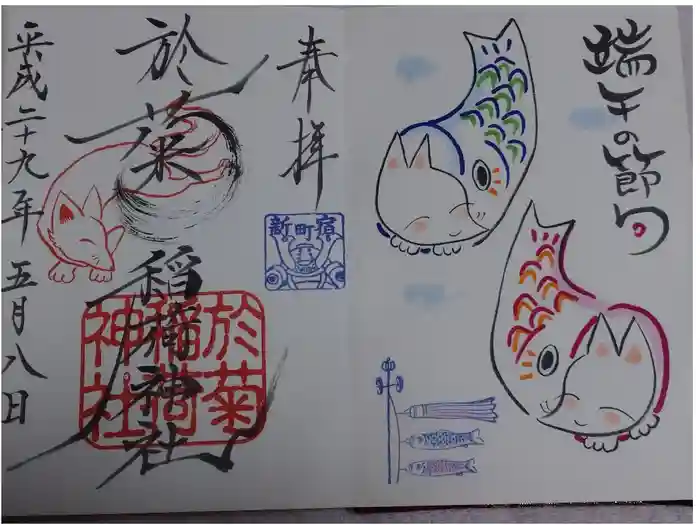 端午の節句
奉拝
新町宿
於菊稲荷神社
於菊
稲荷
神社
平成二十九年五月八日